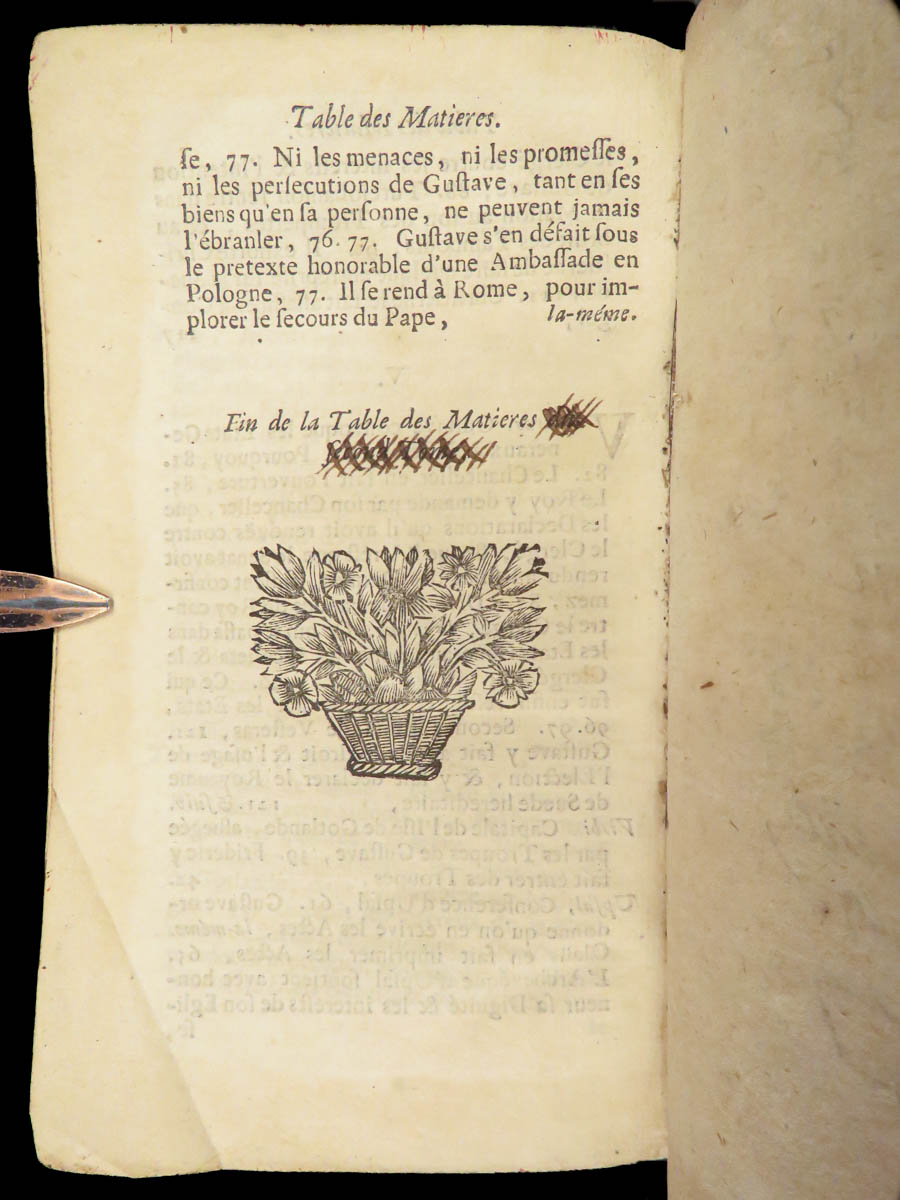 Table des Matieres.
ſe, 77. Ni les menaces, ni les promeſſes,
ni les perſecutions de Guſtave, tant en ſes
biens qu'en ſa perſonne, ne peuvent jamais
l'ébranler, 76. 77. Guſtave s'en défait ſous
le pretexte honorable d'une Ambaſſade en
Pologne, 77. Il ſe rend à Rome, pour im-
plorer le ſecours du Pape, la-méme.
Fin de la Table des Matieres